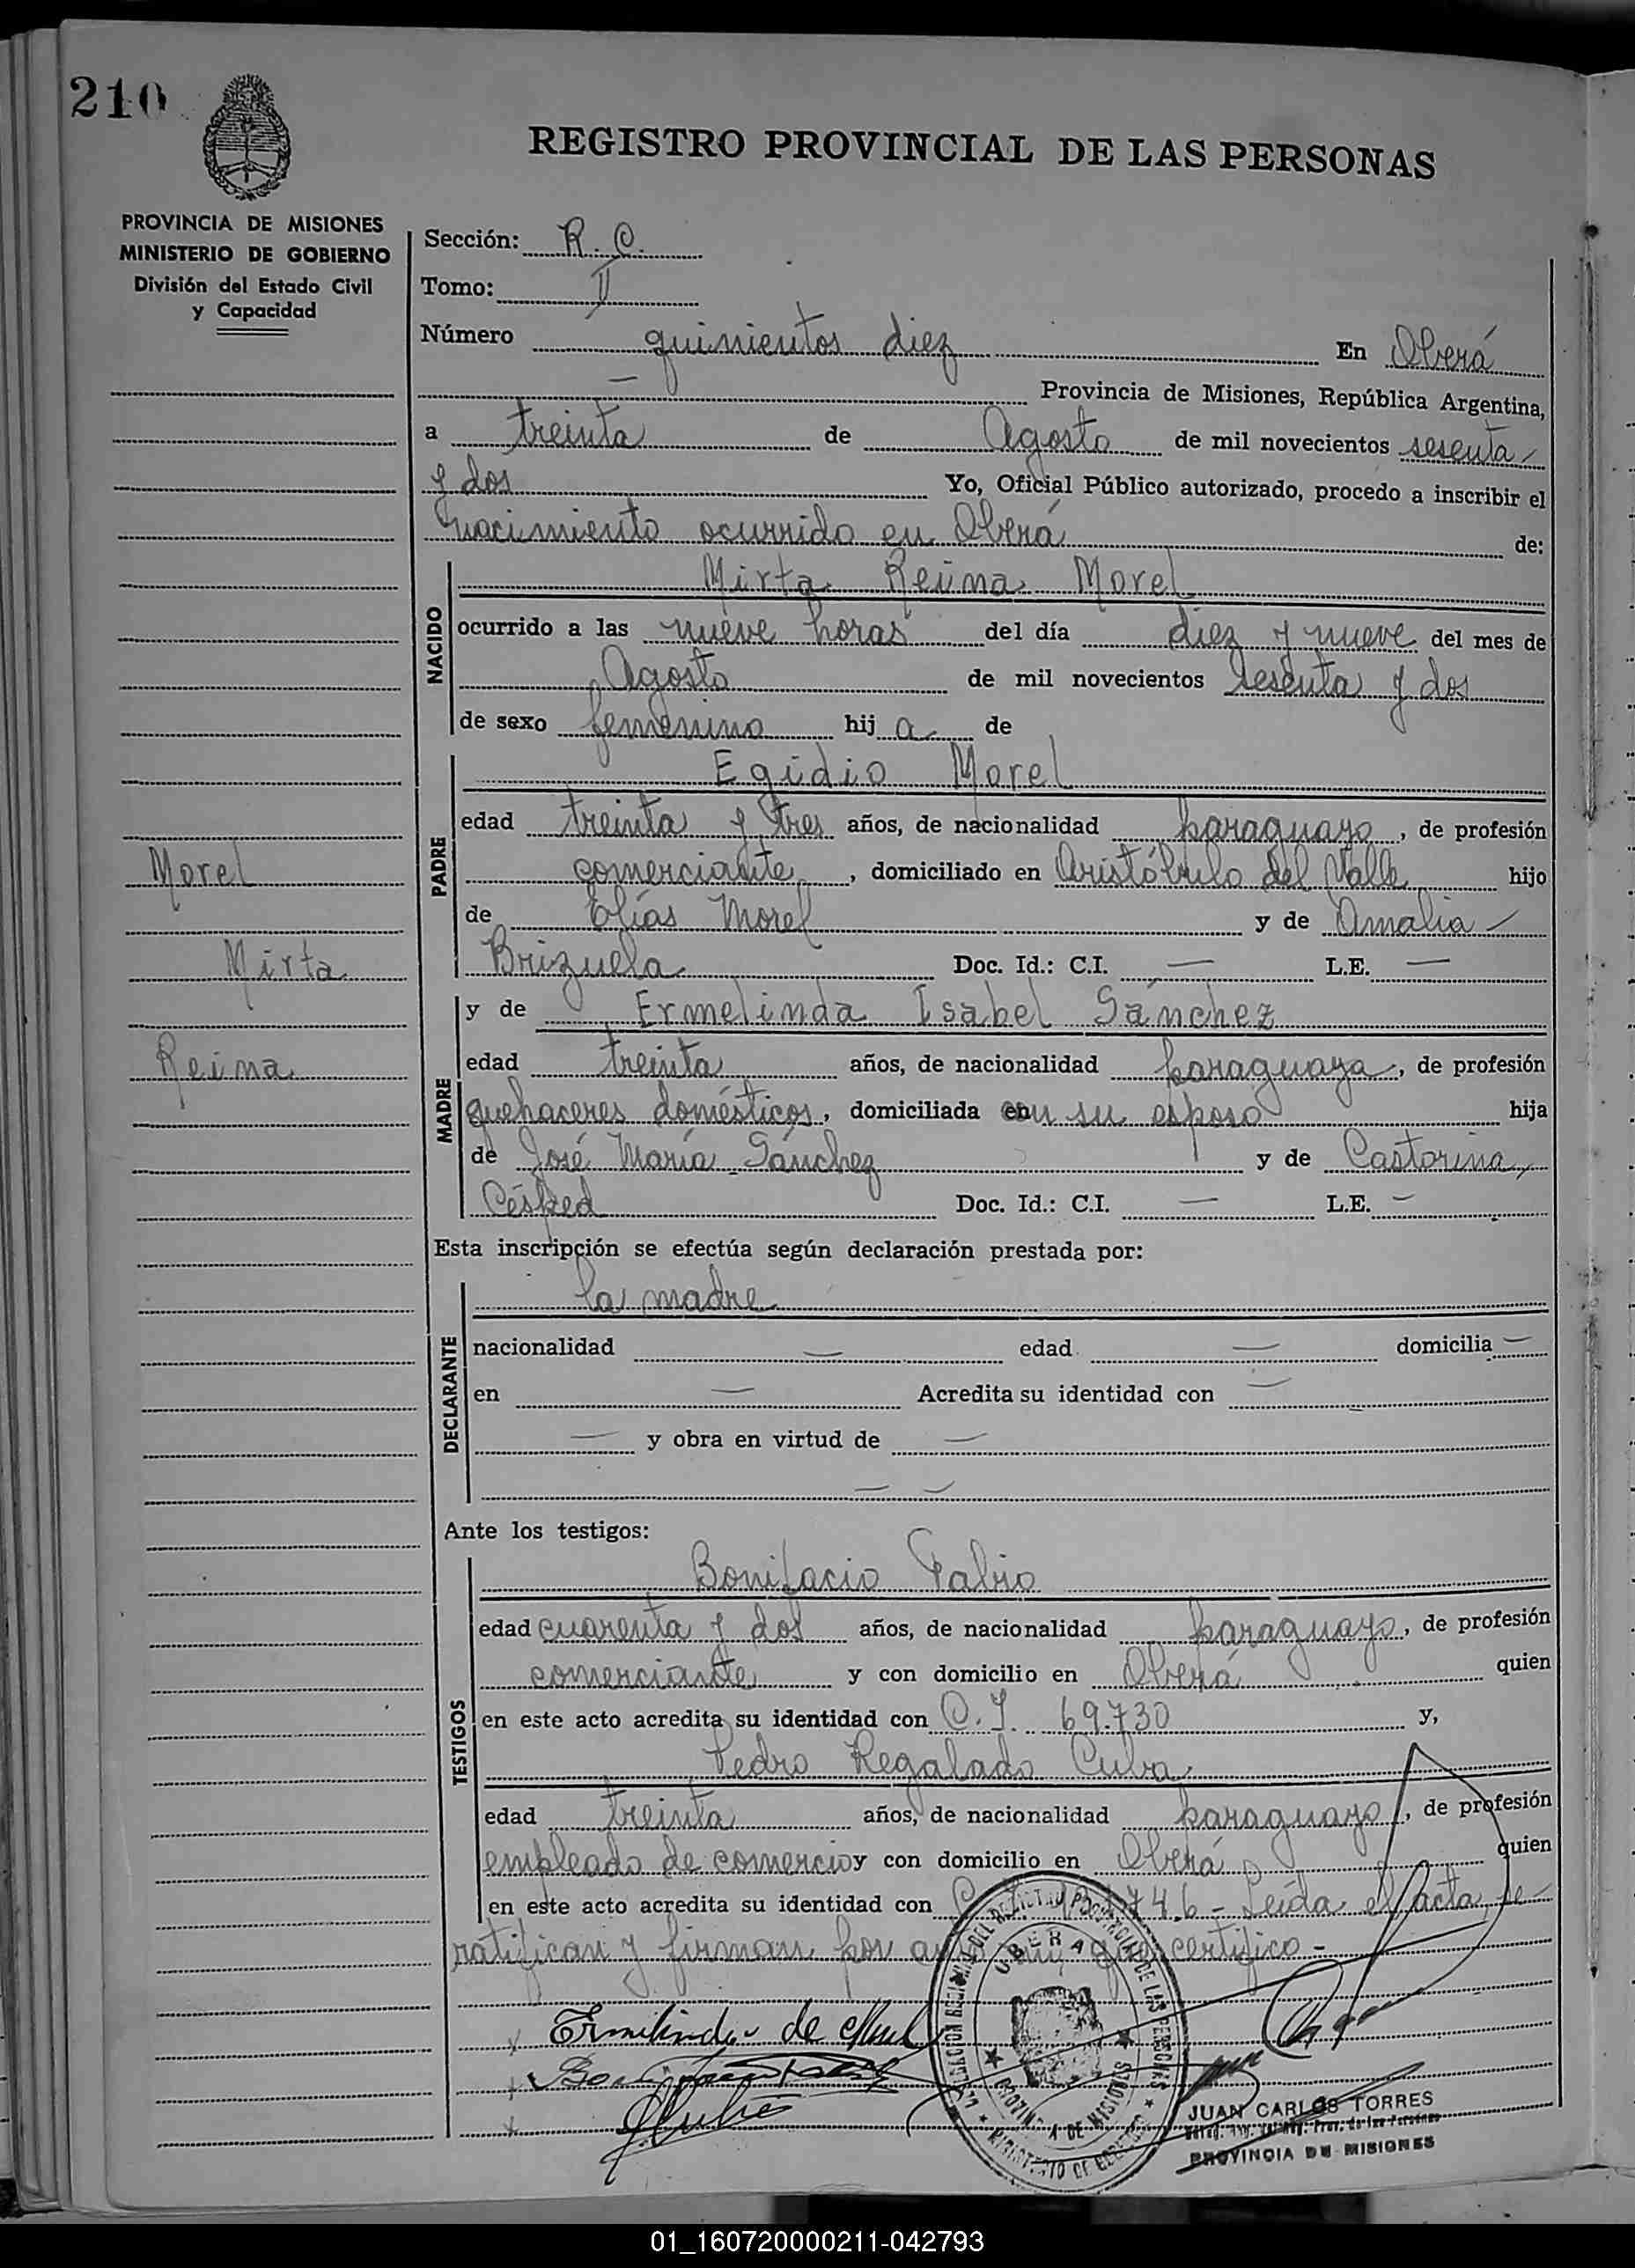 210
REGISTRO PROVINCIAL DE LAS PERSONAS
PROVINCIA DE MISIONES
MINISTERIO DE GOBIERNO
División del Estado Civil
y Capacidad
Sección: R. C.
Tomo: II
Número quinientos diez En Oberá
— Provincia de Misiones, República Argentina,
a treinta de Agosto de mil novecientos sesenta
y dos Yo, Oficial Público autorizado, procedo a inscribir el
nacimiento ocurrido en Oberá de:
NACIDO
Mirta Reina Morel
ocurrido a las nueve horas del día diez y nueve del mes de
Agosto de mil novecientos sesenta y dos
de sexo femenino hij a de
PADRE
Egidio Morel
edad treinta y tres años, de nacionalidad paraguayo, de profesión
comerciante, domiciliado en Aristóbulo del Valle hijo
de Elías Morel y de Amalia —
Brizuela Doc. Id.: C.I. — L.E. —
Morel
Mirta
Reina
MADRE
y de Ermelinda Isabel Sánchez
edad treinta años, de nacionalidad paraguaya, de profesión
quehaceres domésticos, domiciliada con su esposo hija
de José María Sánchez y de Castorina
Césped Doc. Id.: C.I. — L.E. —
Esta inscripción se efectúa según declaración prestada por:
DECLARANTE
la madre
nacionalidad — edad — domicilia —
en — Acredita su identidad con —
— y obra en virtud de —
— —
Ante los testigos:
TESTIGOS
Bonifacio Fabio
edad cuarenta y dos años, de nacionalidad paraguayo, de profesión
comerciante y con domicilio en Oberá quien
en este acto acredita su identidad con C.I. 69.730 y,
Pedro Regalado Cuba
edad treinta años, de nacionalidad paraguayo, de profesión
empleado de comercio y con domicilio en Oberá quien
en este acto acredita su identidad con Leída el acta, se
ratifican y firman por que certifico -
Ermelinda de Morel
OBERA
PROVINCIA DE MISIONES
MINISTERIO DE GOBIERNO
JUAN CARLOS TORRES
PROVINCIA DE MISIONES
01_160720000211-042793